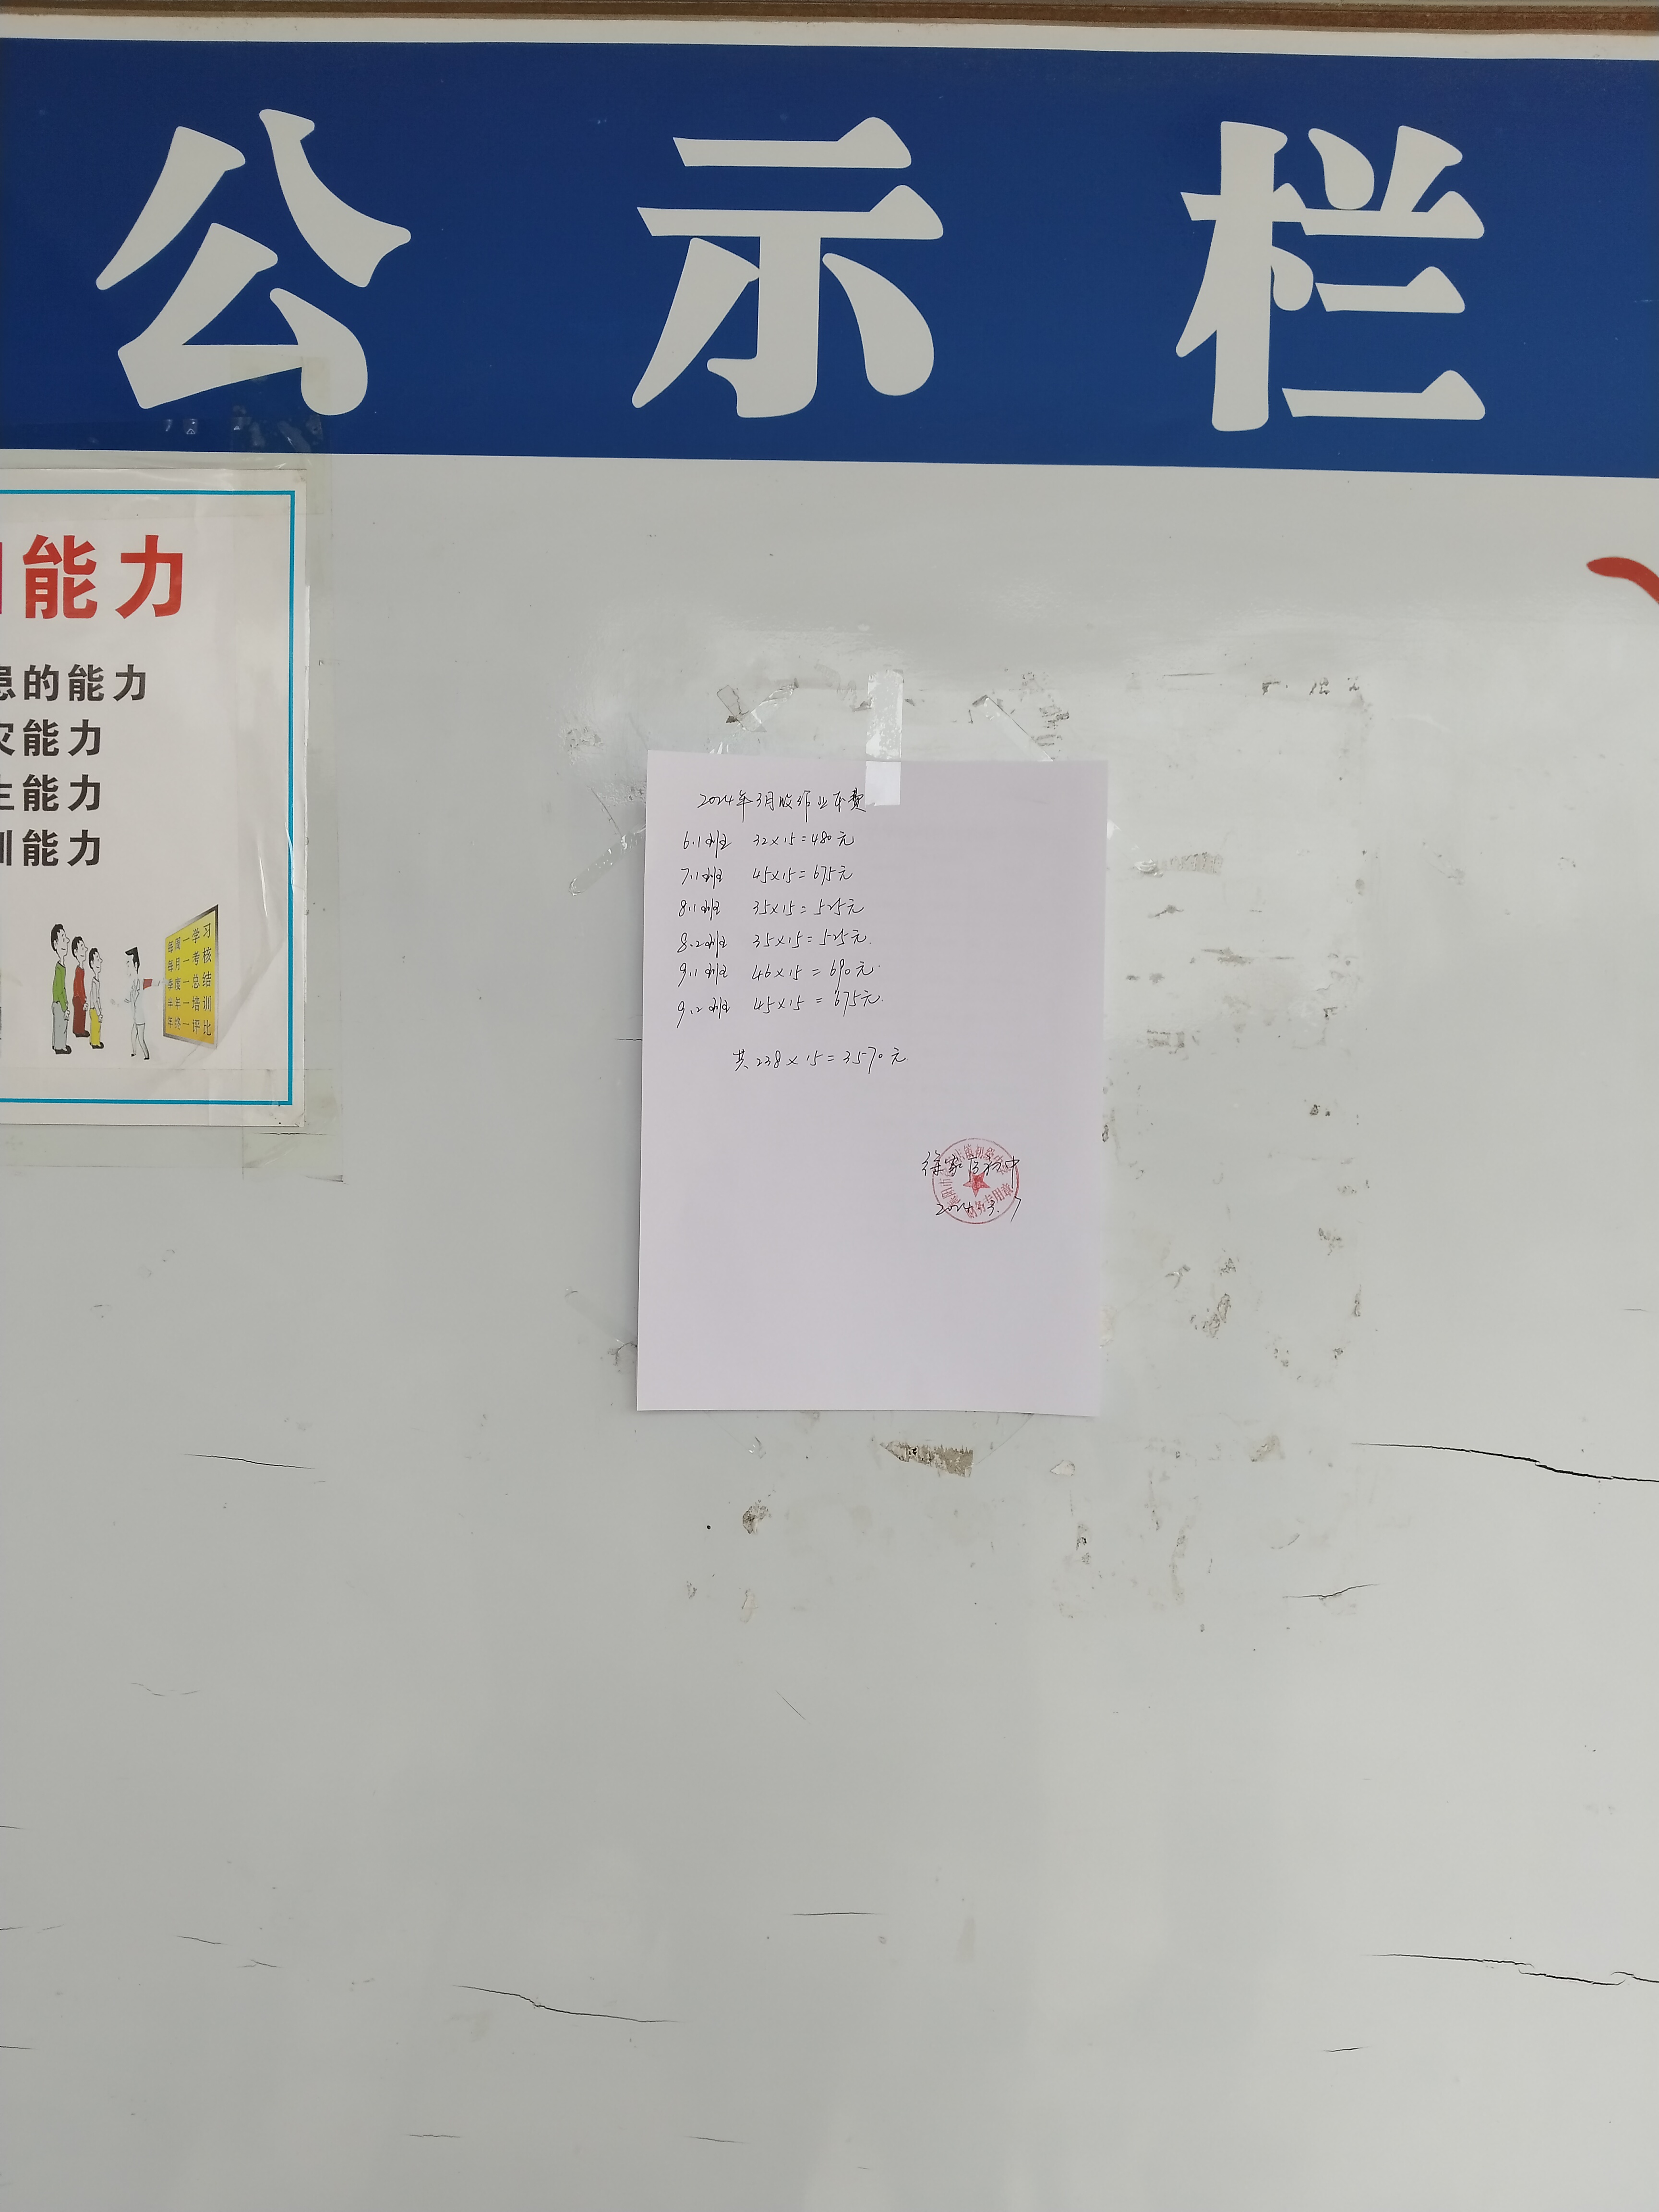 公示栏
能力
患的能力
灾能力
生能力
训能力
每周一学习
每月一考核
季度一总结
半年一培训
年终一评比
2024年3月收作业本费
6.1班 32×15=480元
7.1班 45×15=675元
8.1班 35×15=525元
8.2班 35×15=525元.
9.1班 46×15=690元.
9.2班 45×15=675元.
共238×15=3570元
徐家店初中
2024.3.7
财务专用章